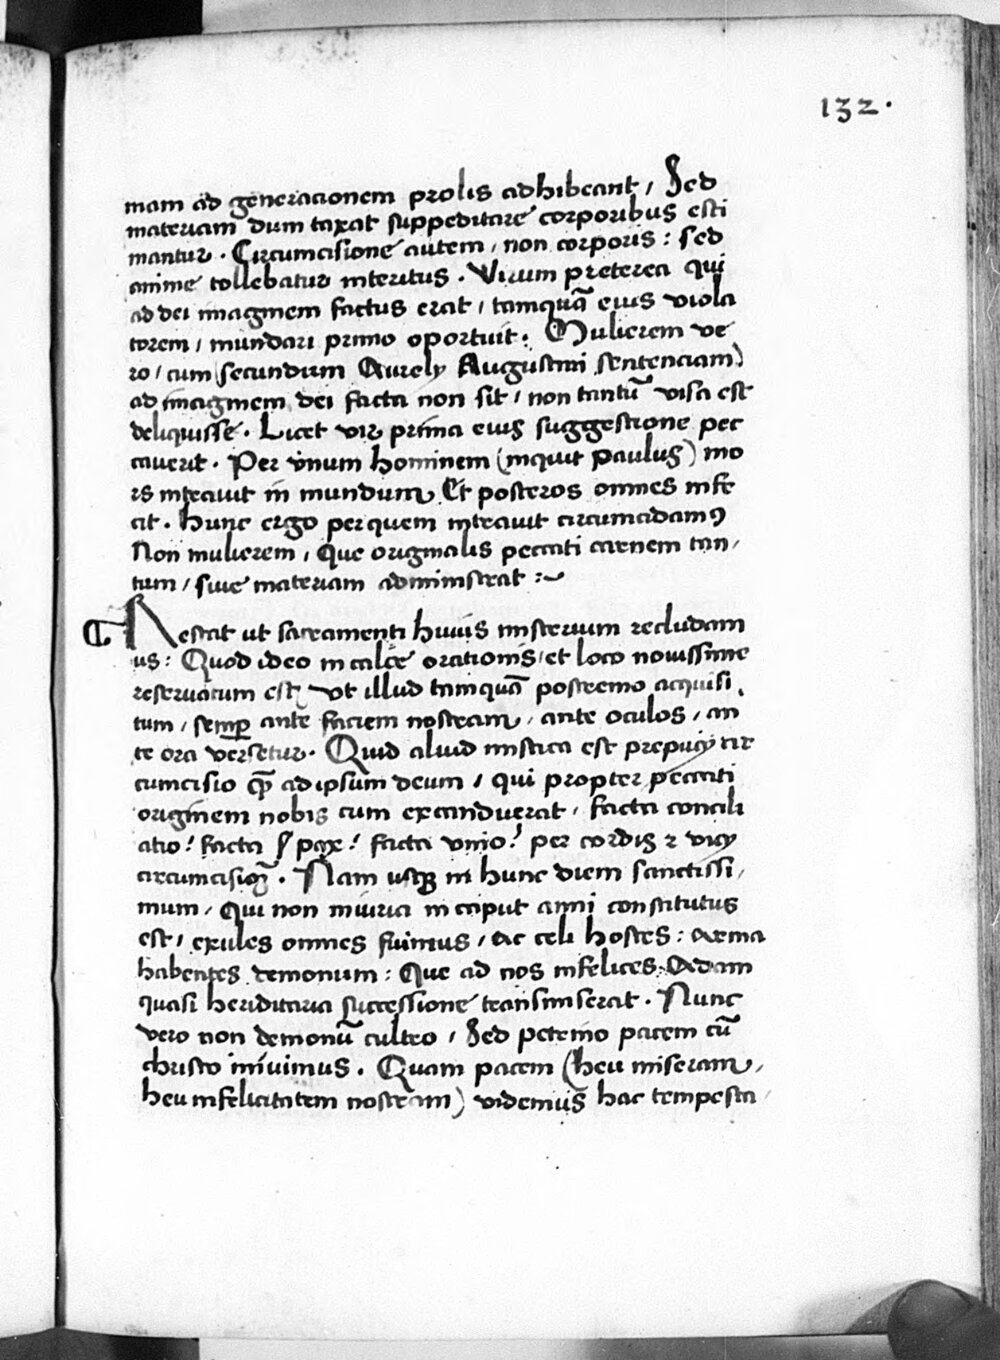 132.
mam ad generacionem prolis adhibeant, Sed
materiam dum taxat suppeditare corporibus esti
mantur. Circumcisione autem, non corporis: sed
anime tollebatur interitus. Virum preterea qui
ad dei imaginem factus erat, tamquā eius viola
torem, mundari primo oportuit. Mulierem ve
ro, cum (secundum Aurely Augustini sentenciam)
ad imaginem dei facta non sit, non tantū visa est
deliquisse. Licet vir prima eius suggestione pec
caverit. Per vnum hominem (inquit Paulus) mo
rs intravit in mundum, Et posteros omnes infe
cit. Hunc ergo per quem intravit circumcidamꝰ
Non mulierem, Que originalis peccati carnem tan,
tum, sive materiam administrat :~
Restat ut sacramenti huius misterium recludam
us: Quod ideo in calce orationis, et loco novissime
reservatum est, vt illud tamquā postremo acquisi,
tum, semꝑ ante faciem nostram, ante oculos, an
te ora versetur. Quid aliud mistica est prepucy cir
cumcisio q̄ꝫ ad ipsum deum, qui propter peccati
originem nobis cum excanduerat, facta concili
atio? facta pax? facta vnio? per cordis ⁊ vicy
circumcisionē. Nam usqꝫ in hunc diem sanctissi,
mum, Qui non iniuria in caput anni constitutus
est, exules omnes fuimus, ac celi hostes: arma
habentes demonum: Que ad nos infelices, Adam
quasi heriditaria successione transmiserat. Nunc
vero non demonū cultro, Sed petrino pacem cū
christo inivimus. Quam pacem (heu miseram,
heu infelicitatem nostram) videmus hac tempesta,